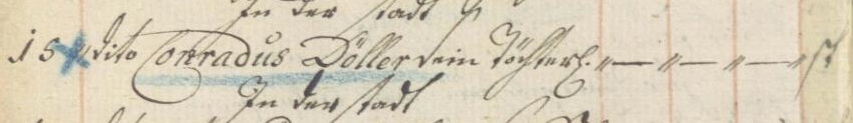 In der stadt
15 dito Conradus Döller sein Töchterl. „—„—„—„ st
In der stadt